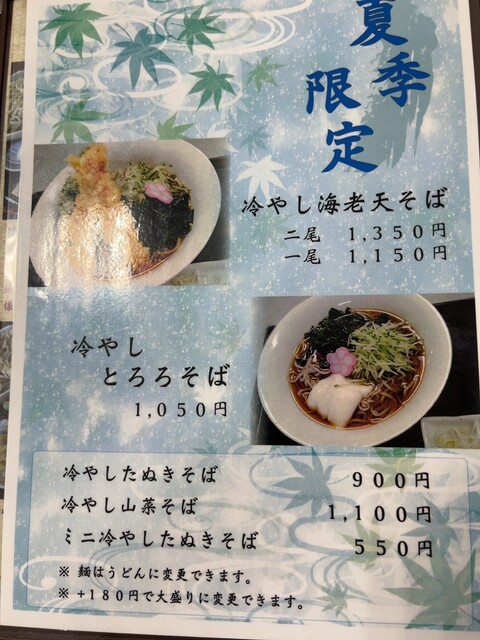 夏季
限定
冷やし海老天そば
二尾 1,350円
一尾 1,150円
冷やし
とろろそば
1,050円
冷やしたぬきそば 900円
冷やし山菜そば 1,100円
ミニ冷やしたぬきそば 550円
※ 麺はうどんに変更できます。
※ +180円で大盛りに変更できます。